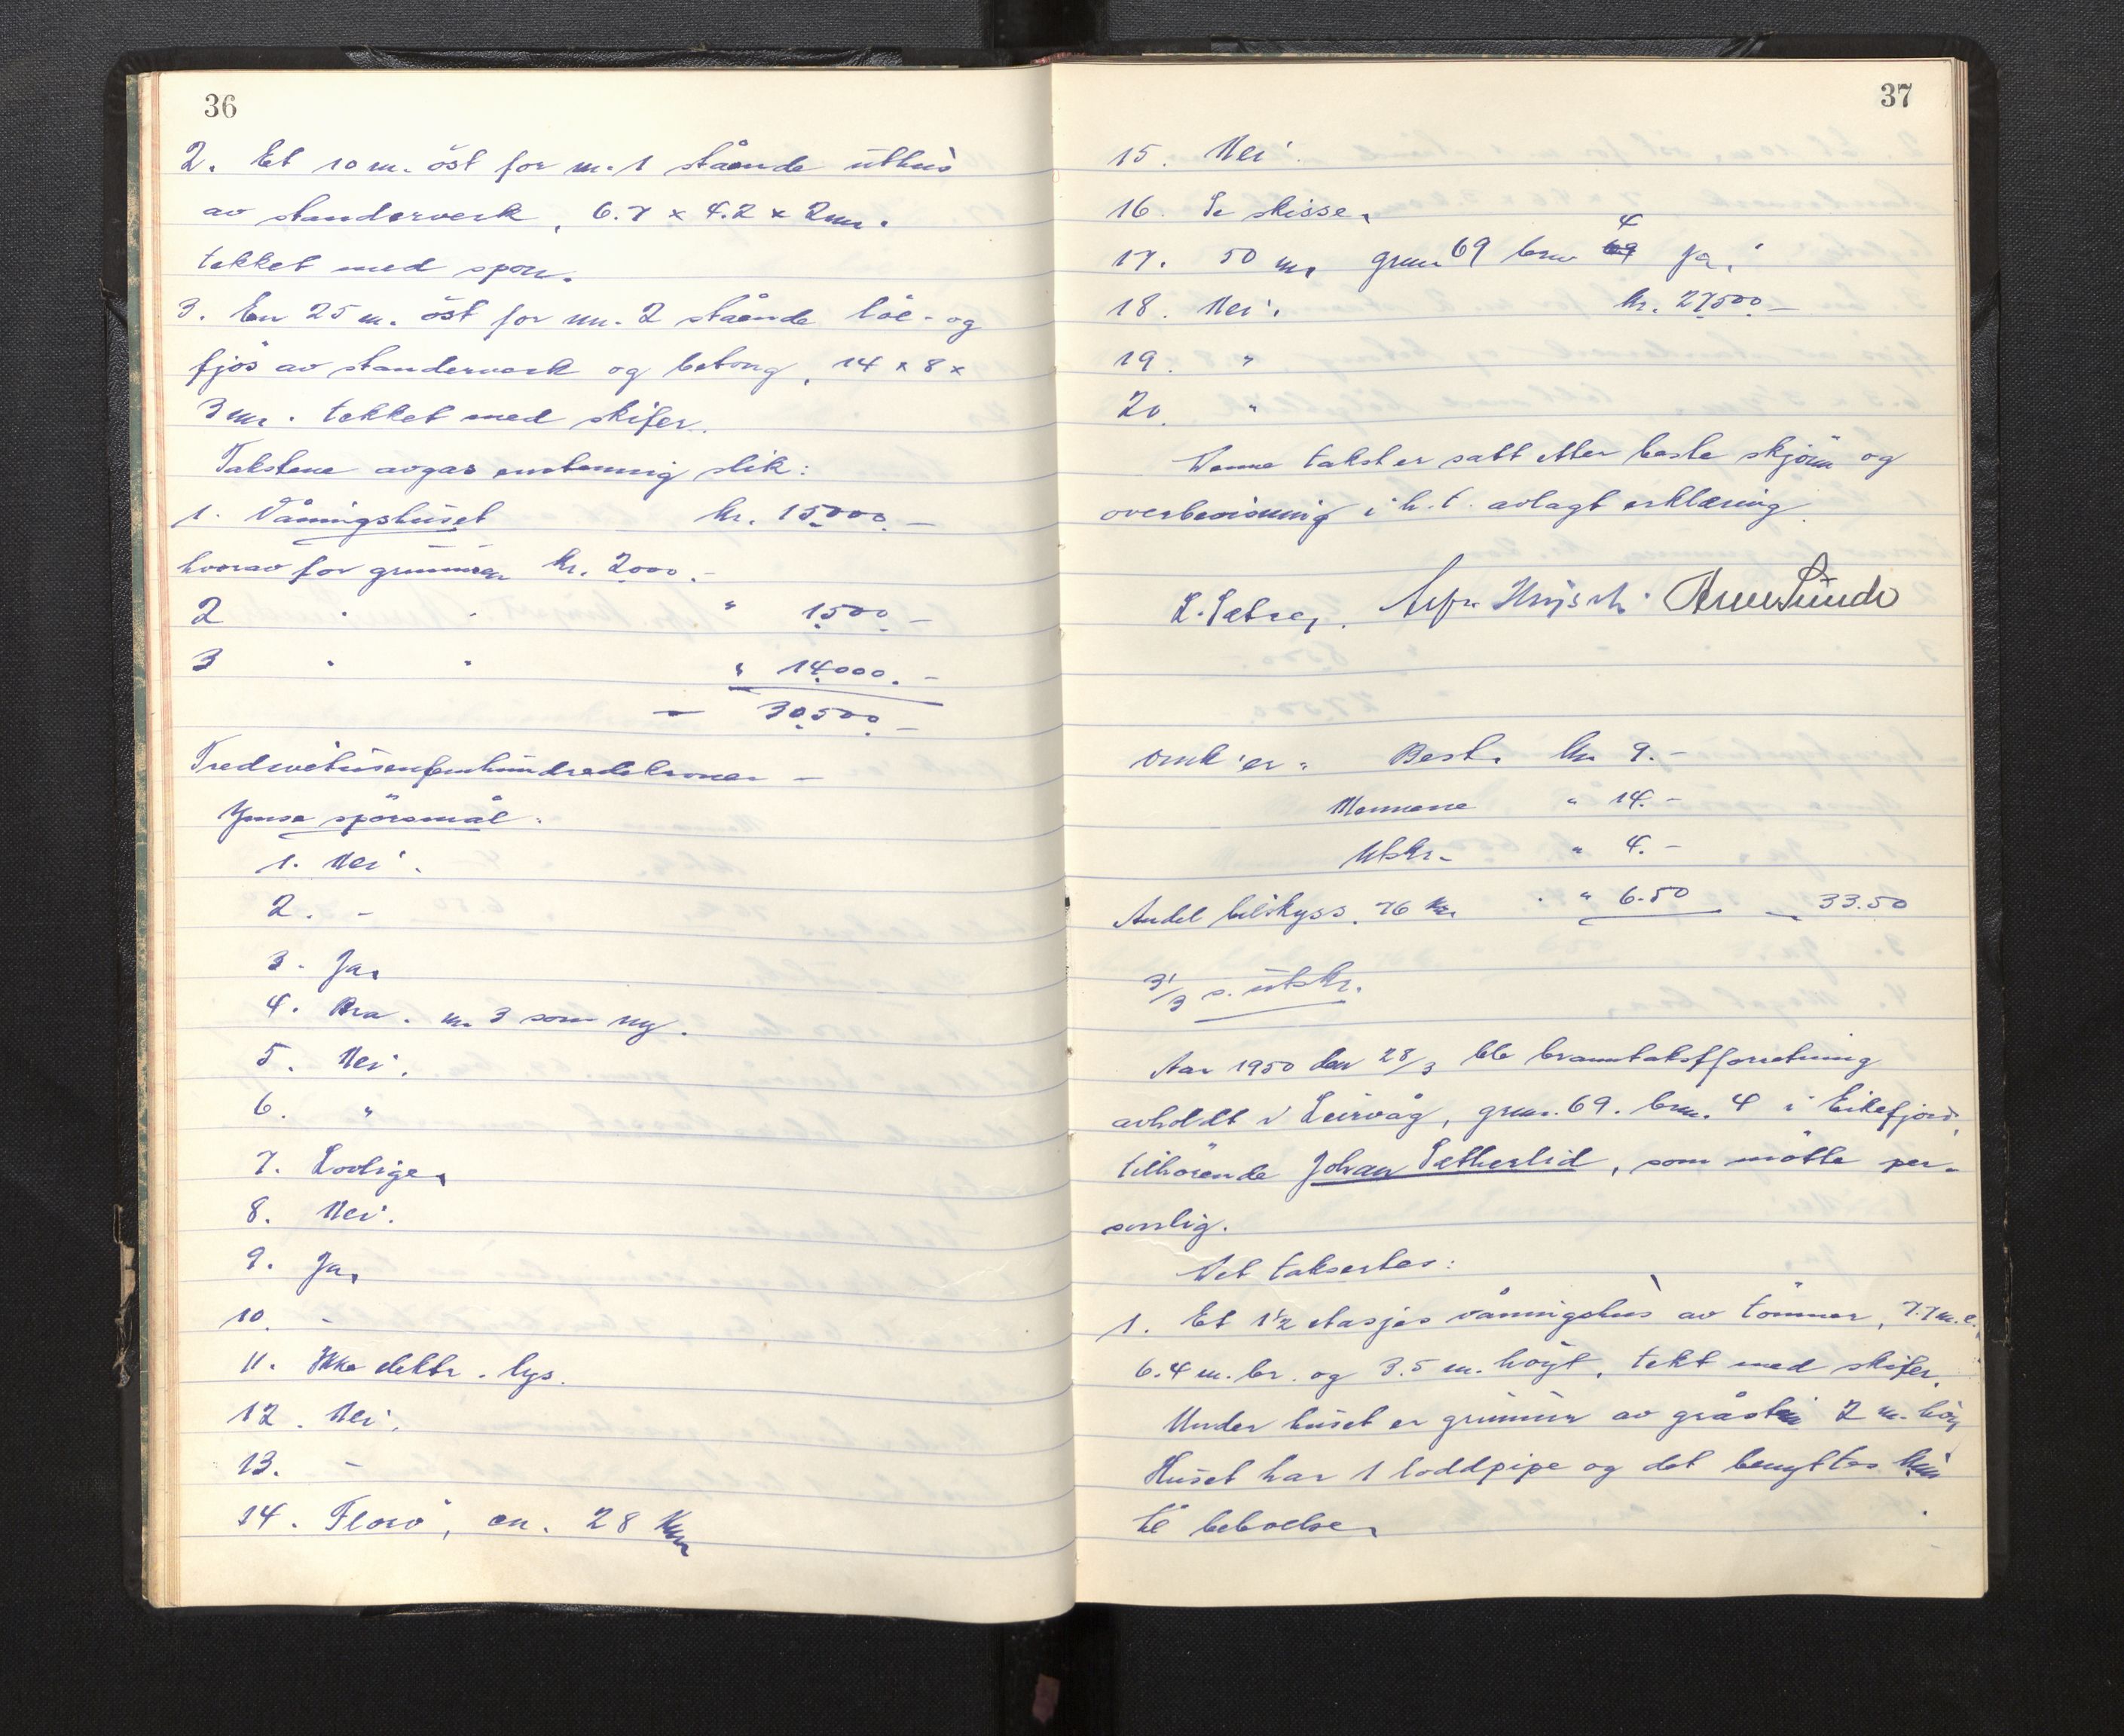 36
2. Et 10 m. öst for nr. 1 stående uthus
av standerverk, 6.7 x 4.2 x 2 m.
tekket med spon.
3. En 25 m. öst for nr. 2 stående löe- og
fjös av standerverk og betong, 14 x 8 x
3 m. tekket med skifer.
Takstene avgas enstemmig slik:
1. Våningshuset kr. 15000.-
hvorav for grunnmuren kr. 2000.-
2 " " " 1500.-
3 " " " 14.000.-
- 30500.-
Tredvetusenfemhundredekroner -
Ymse spörsmål.
1. Nei.
2. -
3. Ja.
4. Bra. nr. 3 som ny.
5. Nei.
6. "
7. Lovlige.
8. Nei.
9. Ja.
10. -
11. Ikke elektr. lys.
12. Nei.
13. -
14. Florö, ca. 28 km
37
15. Nei.
16. Se skisse.
17. 50 m. grnr. 69 bnr 69 4 Ja.
18. Nei. kr. 27500.-
19. "
20. "
Denne takst er satt etter beste skjönn og
overbevisning i h.t. avlagt erklæring.
L. Sætre.
Omk'er: Best. kr 9.-
Mennene " 14.-
Utskr. " 4.-
Andel bilskyss. 76 km " 6.50 - 33.50
31/3 s. utskr.
Aar 1950 den 28/3 ble branntakstforretning
avholdt i Leirvåg, grnr. 69. bnr. 4 i Eikefjord,
tilhörende Johan Sætherlid, som mötte per-
sonlig.
Det takseres:
1. Et 1½ etasjes våningshus av tömmer, 7.7 m. l.
6.4 m. br. og 3.5 m. höyt, tekt med skifer.
Under huset er grunnmur av gråstein 2 m. höy
Huset har 1 loddpipe og det benyttes kun
til beboelse.